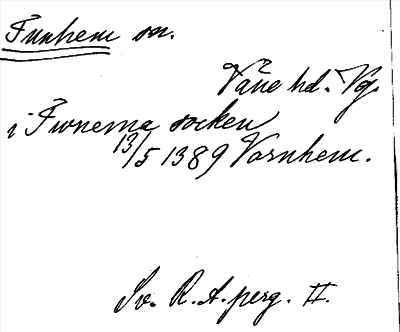 Funhem sn.
Väne hd. Vg.
i Fwnema socken
13/5 1389 Varnhem.
Sv. R. A. perg. II.